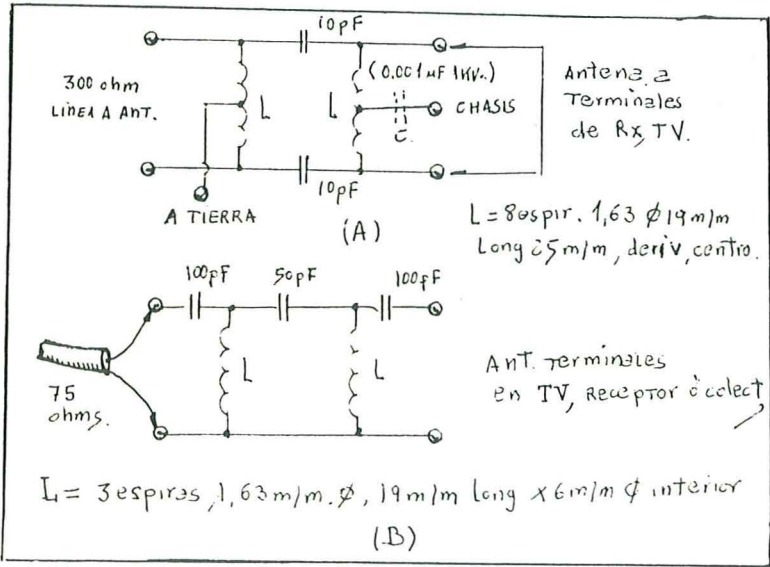 10pF
300 ohm
LINEA A ANT.
L
L
(0.001µF 1KV.)
C.
CHASIS
Antena a
Terminales
de Rx, TV.
10pF
A TIERRA
(A)
L = 8 espir. 1,63 ϕ 19 m/m
Long 25 m/m, deriv, centro.
100pF
50pF
100pF
L
L
75
ohms.
Ant. Terminales
en TV, Receptor ò colect,
L = 3 espiras, 1,63 m/m. ϕ, 19 m/m long x 6 m/m ϕ interior
(B)